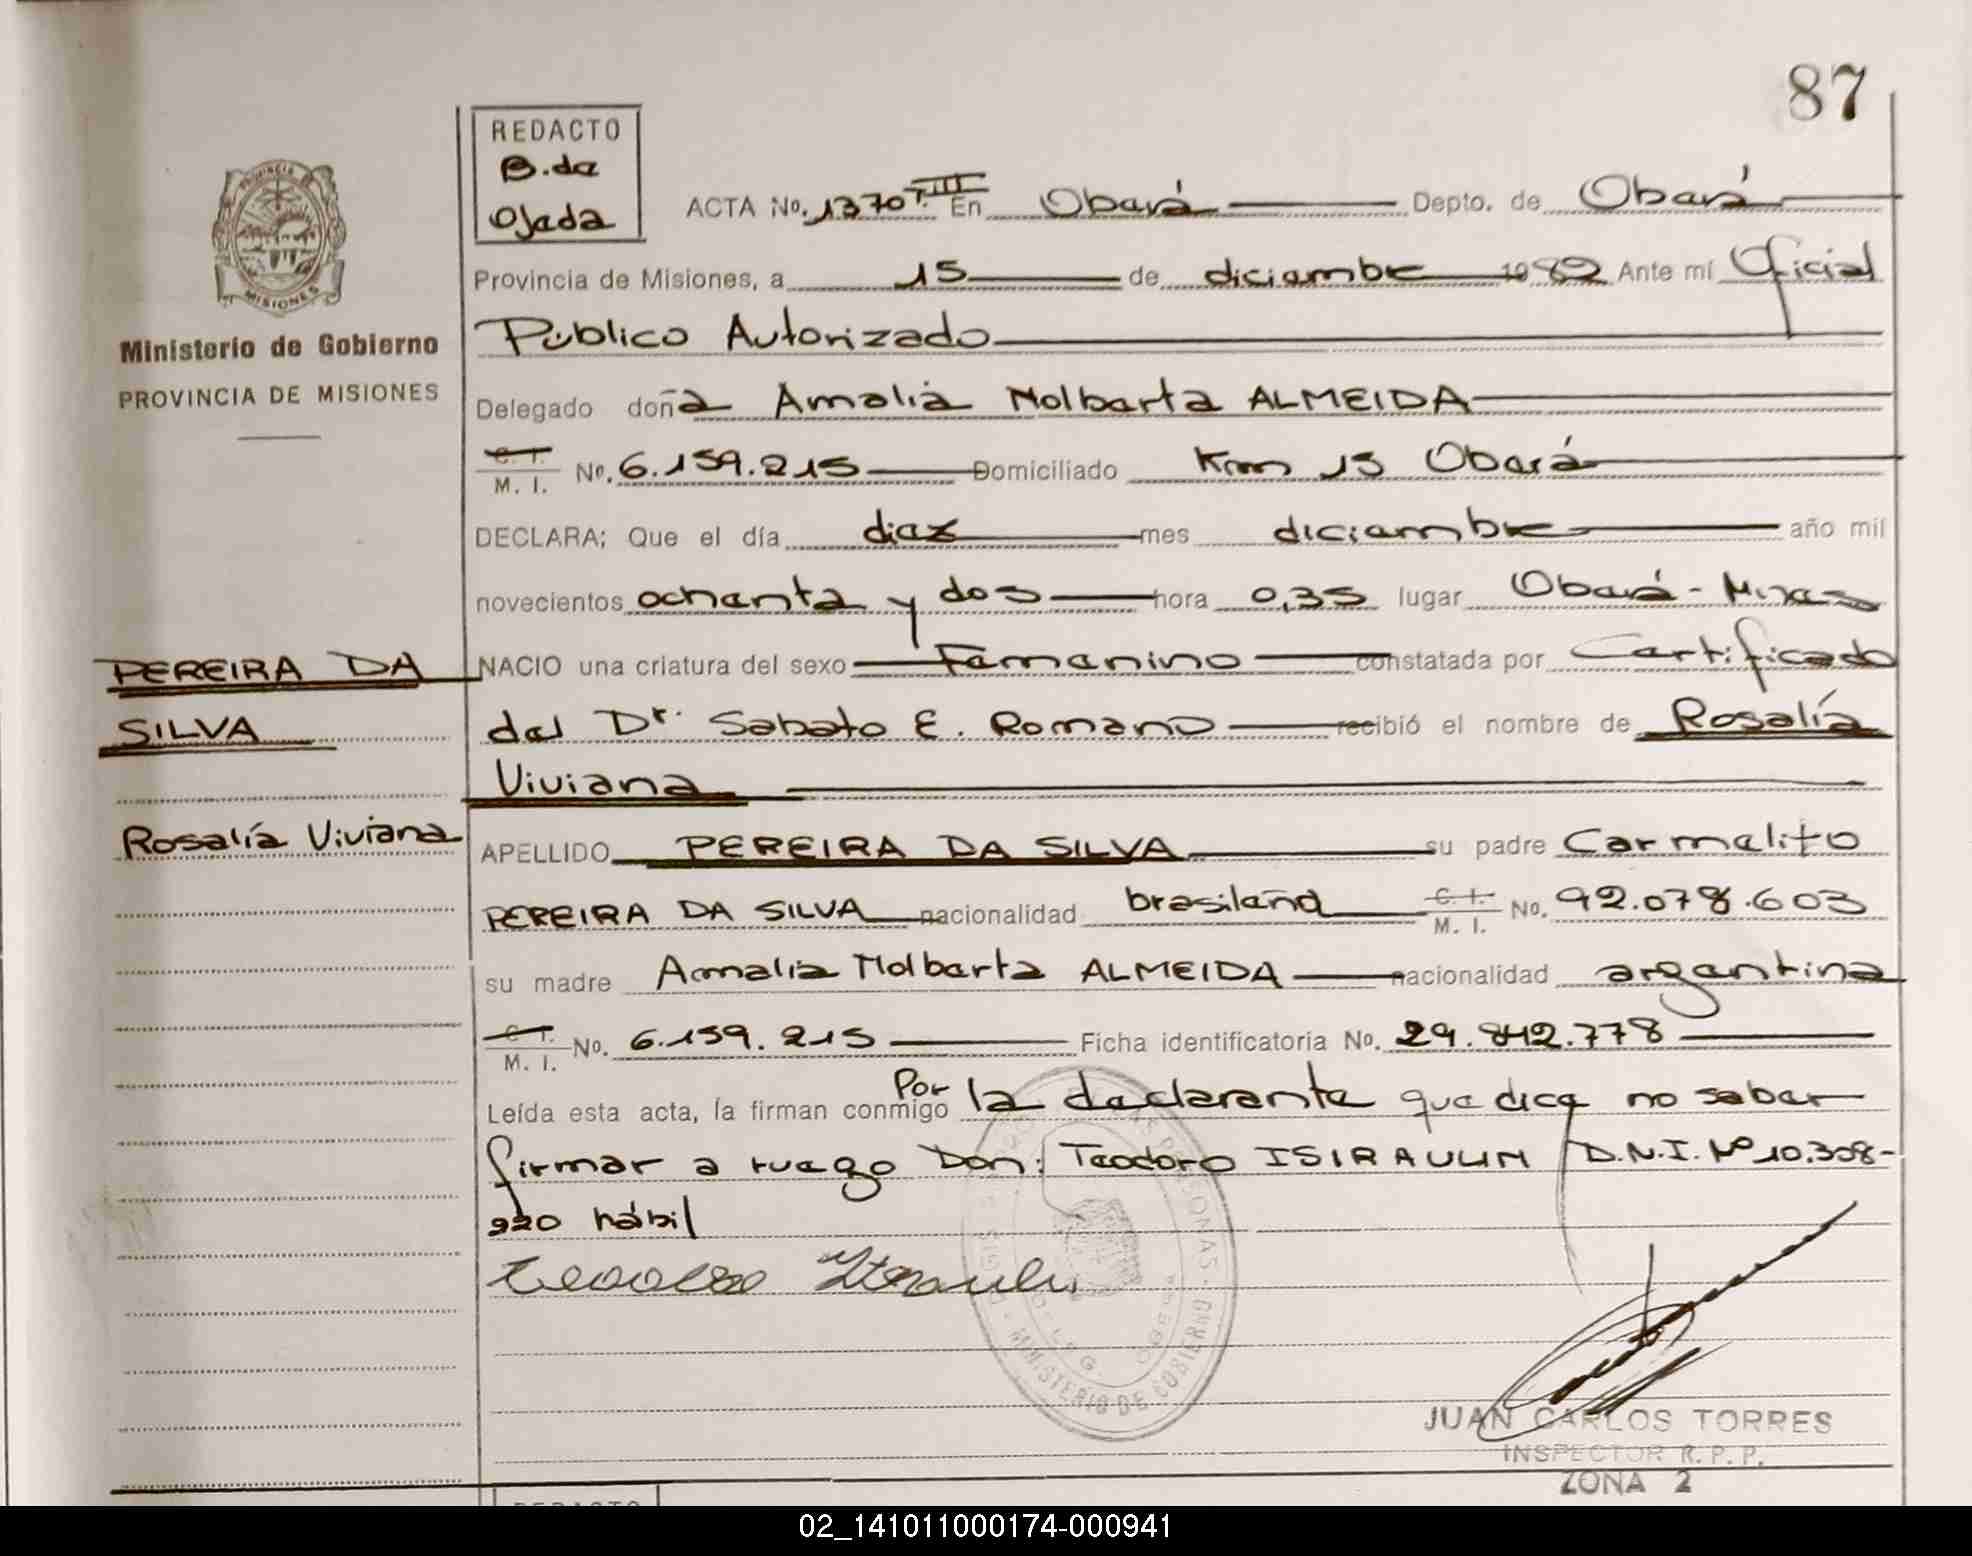 87
REDACTO
B. de
Ojeda
ACTA No. 1370 T.III En Oberá Depto. de Oberá
Provincia de Misiones, a 15 de diciembre 1982 Ante mí Oficial
Público Autorizado
Ministerio de Gobierno
PROVINCIA DE MISIONES
Delegado doña Amalia Nolberta ALMEIDA
C. I. M. I. No. 6.159.215 Domiciliado Km 15 Oberá
DECLARA; Que el día diez mes diciembre año mil
novecientos ochenta y dos hora 0,35 lugar Oberá - Mnes
PEREIRA DA
SILVA
Rosalía Viviana
NACIO una criatura del sexo Femenino constatada por Certificado
del Dr. Sabato E. Romano recibió el nombre de Rosalía
Viviana
APELLIDO PEREIRA DA SILVA su padre Carmelito
PEREIRA DA SILVA nacionalidad brasileña C. I. M. I. No. 92.078.603
su madre Amalia Nolberta ALMEIDA nacionalidad argentina
C. I. M. I. No. 6.159.215 Ficha identificatoria No. 29.842.778
Leída esta acta, la firman conmigo Por la declarante que dice no saber
firmar a ruego Don: Teodoro ISIRAULIN D.N.I. Nº 10.308-
920 hábil
MINISTERIO DE GOBIERNO
JUAN CARLOS TORRES
INSPECTOR R. P. P.
ZONA 2
REDACTO
02_141011000174-000941